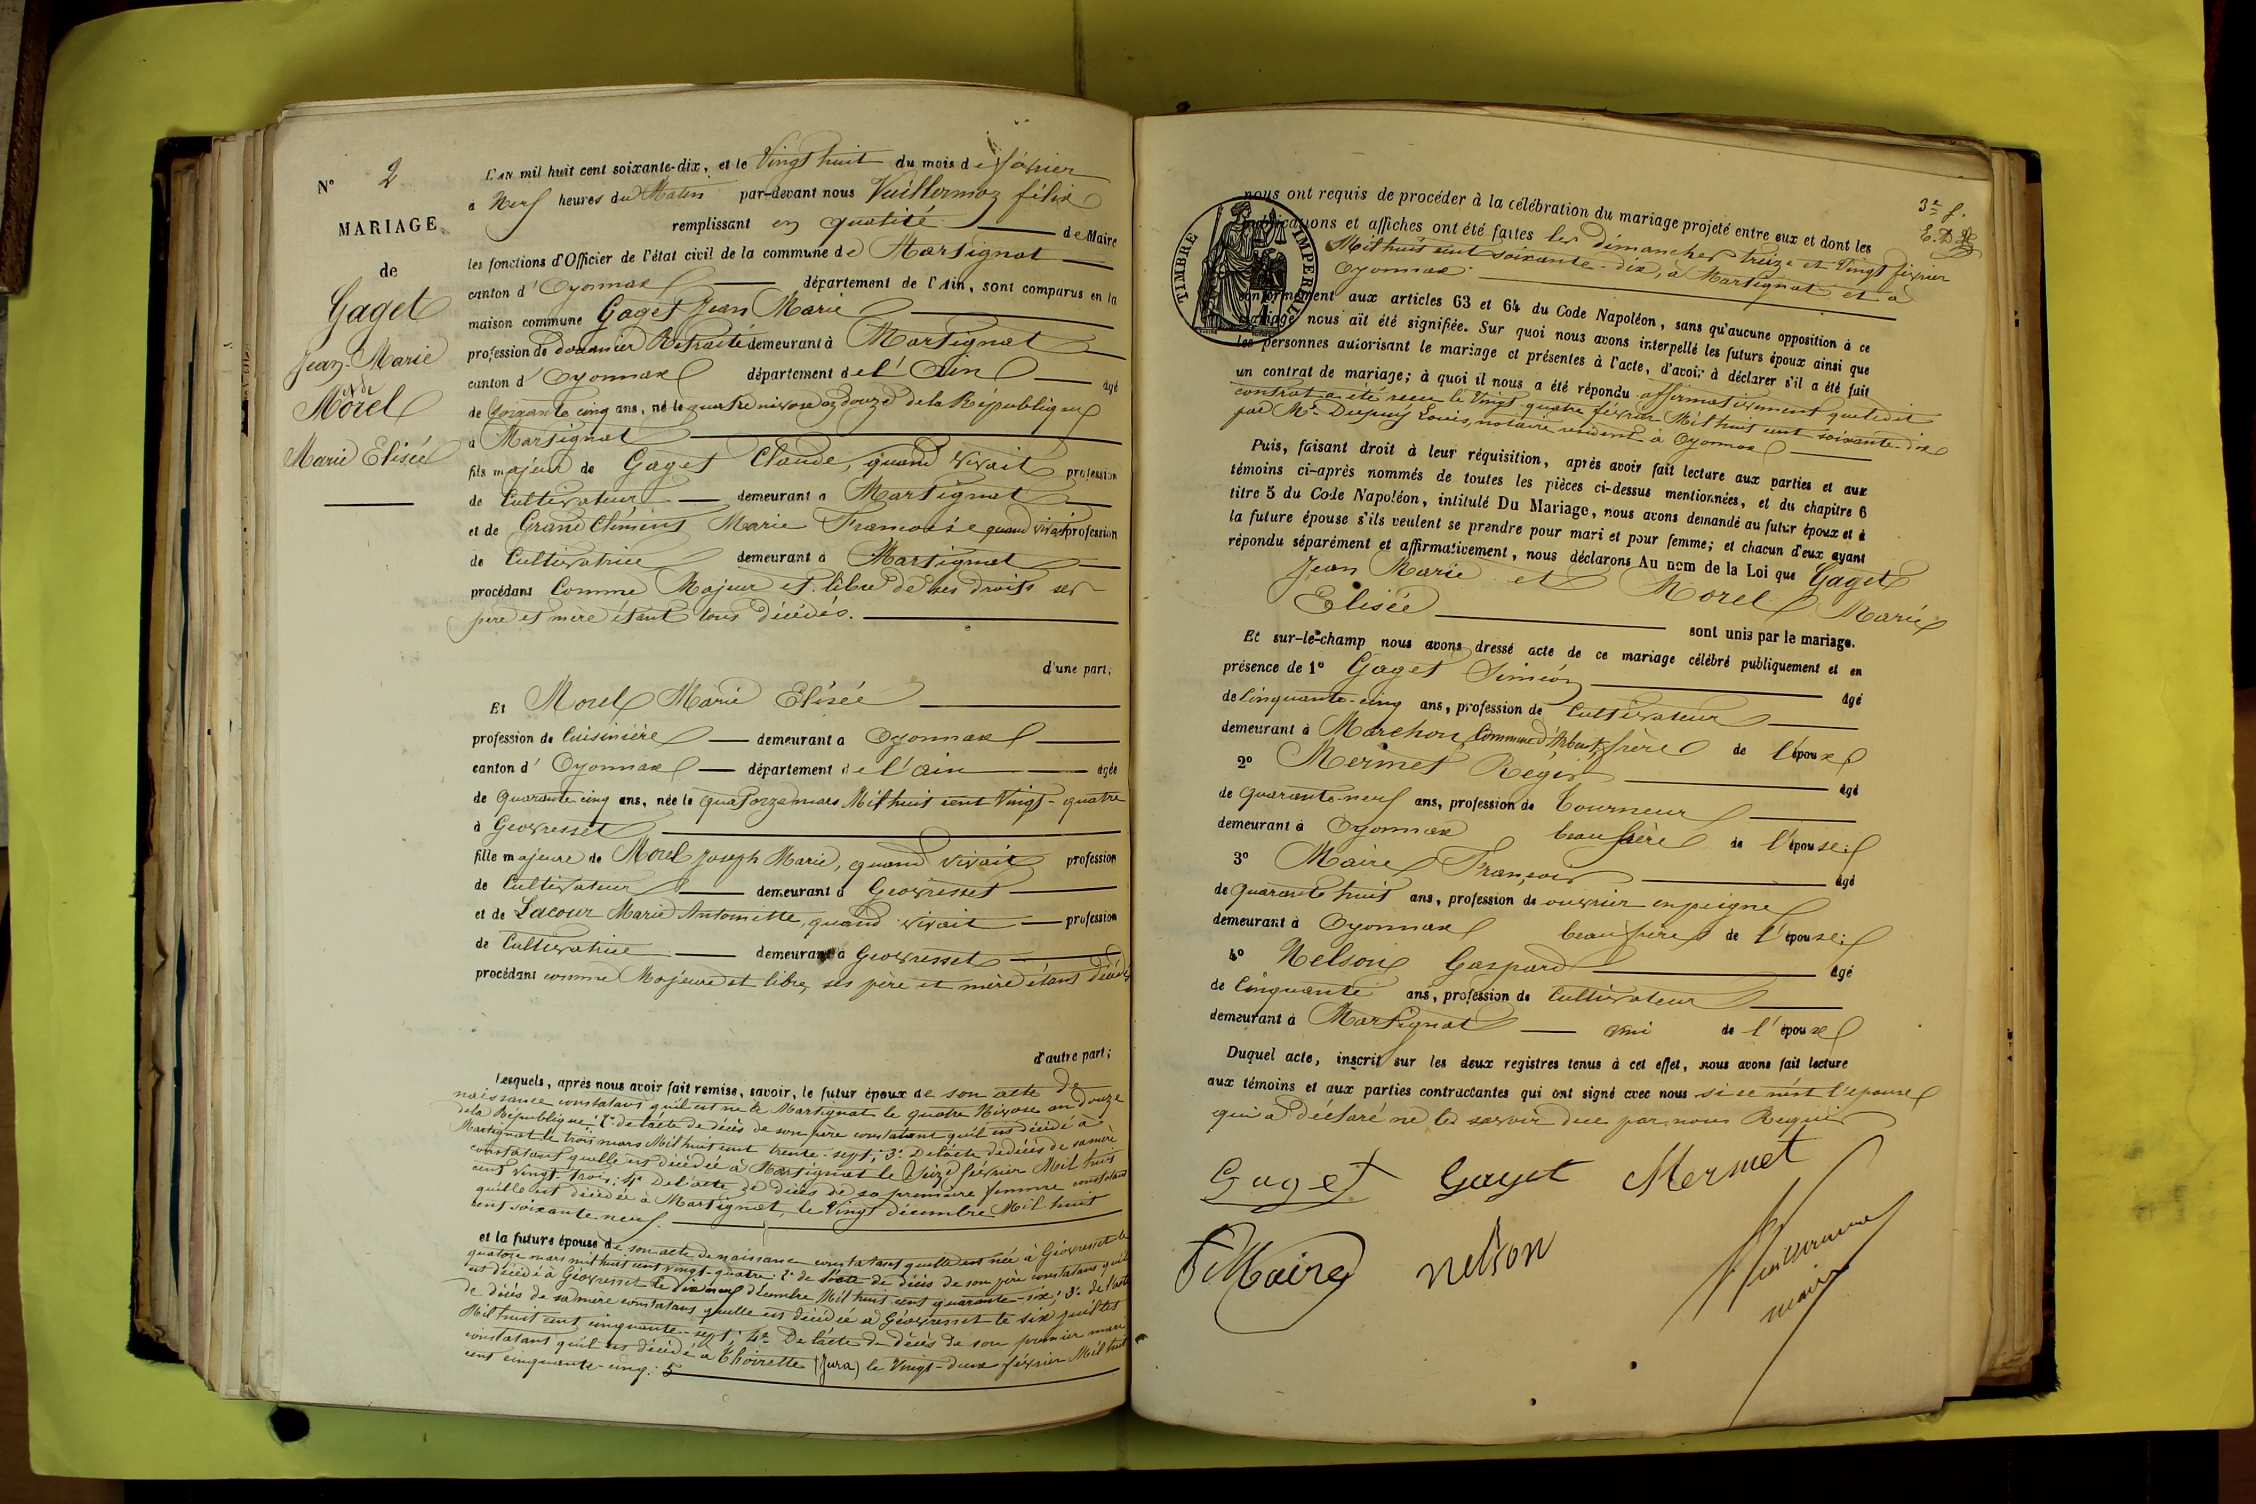 N° 2
MARIAGE
de
Gaget
Jean-Marie
et de
Morel
Marie Elisée
L'AN mil huit cent soixante-dix, et le Vingt huit du mois de février
à Neuf heures du Matin par-devant nous Vuillermoz félix
remplissant en qualité de Maire
les fonctions d'Officier de l'état civil de la commune de Martignat
canton d'Oyonnax département de l'Ain, sont comparus en la
maison commune Gaget Jean Marie
profession de douanier Retraité demeurant à Martignat
canton d'Oyonnax département de l'Ain âgé
de soixante cinq ans, né le quatre nivose an douze de la République
à Martignat
fils majeur de Gaget Claude, quand vivait profession
de Cultivateur demeurant à Martignat
et de Grand Clément Marie Francoise quand vivait profession
de Cultivatrice demeurant à Martignat
procédant Comme Majeur et libre de ses droits ses
père et mère étant tous décédés.
d'une part;
Et Morel Marie Elisée
profession de Cuisinière demeurant à Oyonnax
canton d'Oyonnax département de l'ain âgée
de quarante cinq ans, née le quatorze mars Mil huit cent Vingt-quatre
à Géovresset
fille majeure de Morel Joseph Marie, quand vivait profession
de Cultivateur demeurant à Géovresset
et de Lacour Marie Antoinette, quand vivait profession
de Cultivatrice demeurant à Géovresset
procédant comme Majeure et libre, ses père et mère étant décédés
d'autre part;
Lesquels, après nous avoir fait remise, savoir, le futur époux de son acte de
naissance constatant qu'il est né le Martignat le quatre Nivose an douze
de la République; 2° de l'acte de décès de son père constatant qu'il est décédé à
Martignat le trois mars Mil huit cent trente-sept; 3° De l'acte de décès de sa mère
constatant quelle est décédée à Martignat le Seize février Mil huit
cent vingt-trois; 4° De l'acte de décès de sa première femme constatant
qu'elle est décédée à Martignat, le Vingt décembre Mil huit
cent soixante neuf.
et la future épouse de son acte de naissance constatant quelle est née à Géovresset le
quatorze mars mil huit cent vingt-quatre 2° de l'acte de décès de son père constatant qu'il
est décédé à Géovresset le dix neuf décembre Mil huit cent quarante-six; 3° de l'acte
de décès de sa mère constatant quelle est décédée à Géovresset le six juillet
Mil huit cent cinquante-sept; 4° De l'acte de décès de son premier mari
constatant qu'il est décédé à Thoirette (Jura) le Vingt-deux février Mil huit
cent cinquante-cinq: 5
3e f.
E. D.
TIMBRE IMPERIAL
nous ont requis de procéder à la célébration du mariage projeté entre eux et dont les
publications et affiches ont été faites les dimanches treize et Vingt février
Mil huit cent soixante-dix, à Martignat et à
Oyonnax.
conformément aux articles 63 et 64 du Code Napoléon, sans qu'aucune opposition à ce
mariage nous ait été signifiée. Sur quoi nous avons interpellé les futurs époux ainsi que
les personnes autorisant le mariage et présentes à l'acte, d'avoir à déclarer s'il a été fait
un contrat de mariage; à quoi il nous a été répondu affirmativement que ledit
contrat a été reçu le Vingt quatre février Mil huit cent soixante-dix
par Me Dupuy Louis, notaire résident à Oyonnax
Puis, faisant droit à leur réquisition, après avoir fait lecture aux parties et aux
témoins ci-après nommés de toutes les pièces ci-dessus mentionnées, et du chapitre 6
titre 5 du Code Napoléon, intitulé Du Mariage, nous avons demandé au futur époux et à
la future épouse s'ils veulent se prendre pour mari et pour femme; et chacun d'eux ayant
répondu séparément et affirmativement, nous déclarons Au nom de la Loi que Gaget
Jean Marie et Morel Marie
Elisée
sont unis par le mariage.
Et sur-le-champ nous avons dressé acte de ce mariage célébré publiquement et en
présence de 1° Gaget Siméon âgé
de Cinquante-cinq ans, profession de Cultivateur
demeurant à Marchon Commune d'Arbent, frère de l'époux
2° Mermet Régis âgé
de quarante-neuf ans, profession de Tourneur
demeurant à Oyonnax beau frère de l'épouse;
3° Maire François âgé
de quarante huit ans, profession de ouvrier en peigne
demeurant à Oyonnax beau frère de l'épouse;
4° Nelson Gaspard âgé
de Cinquante ans, profession de Cultivateur
demeurant à Martignat ami de l'époux
Duquel acte, inscrit sur les deux registres tenus à cet effet, nous avons fait lecture
aux témoins et aux parties contractantes qui ont signé avec nous si ce n'est l'épouse
qui a déclaré ne le savoir due par nous Requis
Gaget Gaget Mermet
F Maire nelson Vuillermoz
maire